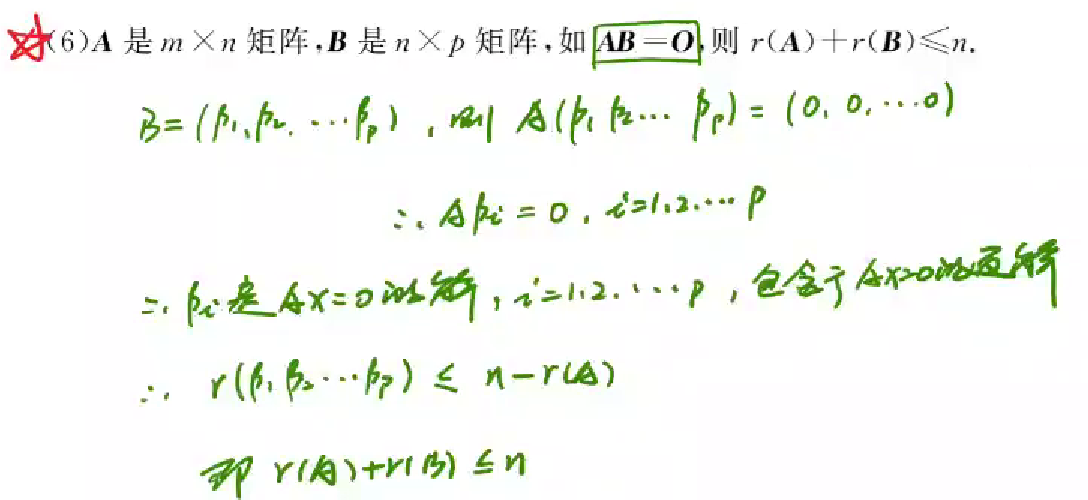 (6)A 是 m×n 矩阵,B 是 n×p 矩阵,如 AB=O,则 r(A)+r(B)≤n.
B=(β₁,β₂,…βₚ),则 A(β₁ β₂…βₚ)=(0,0,…0)
∴ Aβᵢ=0,i=1,2…p
∴ βᵢ是AX=0的解,i=1,2.…p,包含于AX=0的通解
∴ r(β₁ β₂…βₚ)≤ n-r(A)
即 r(A)+r(B)≤n